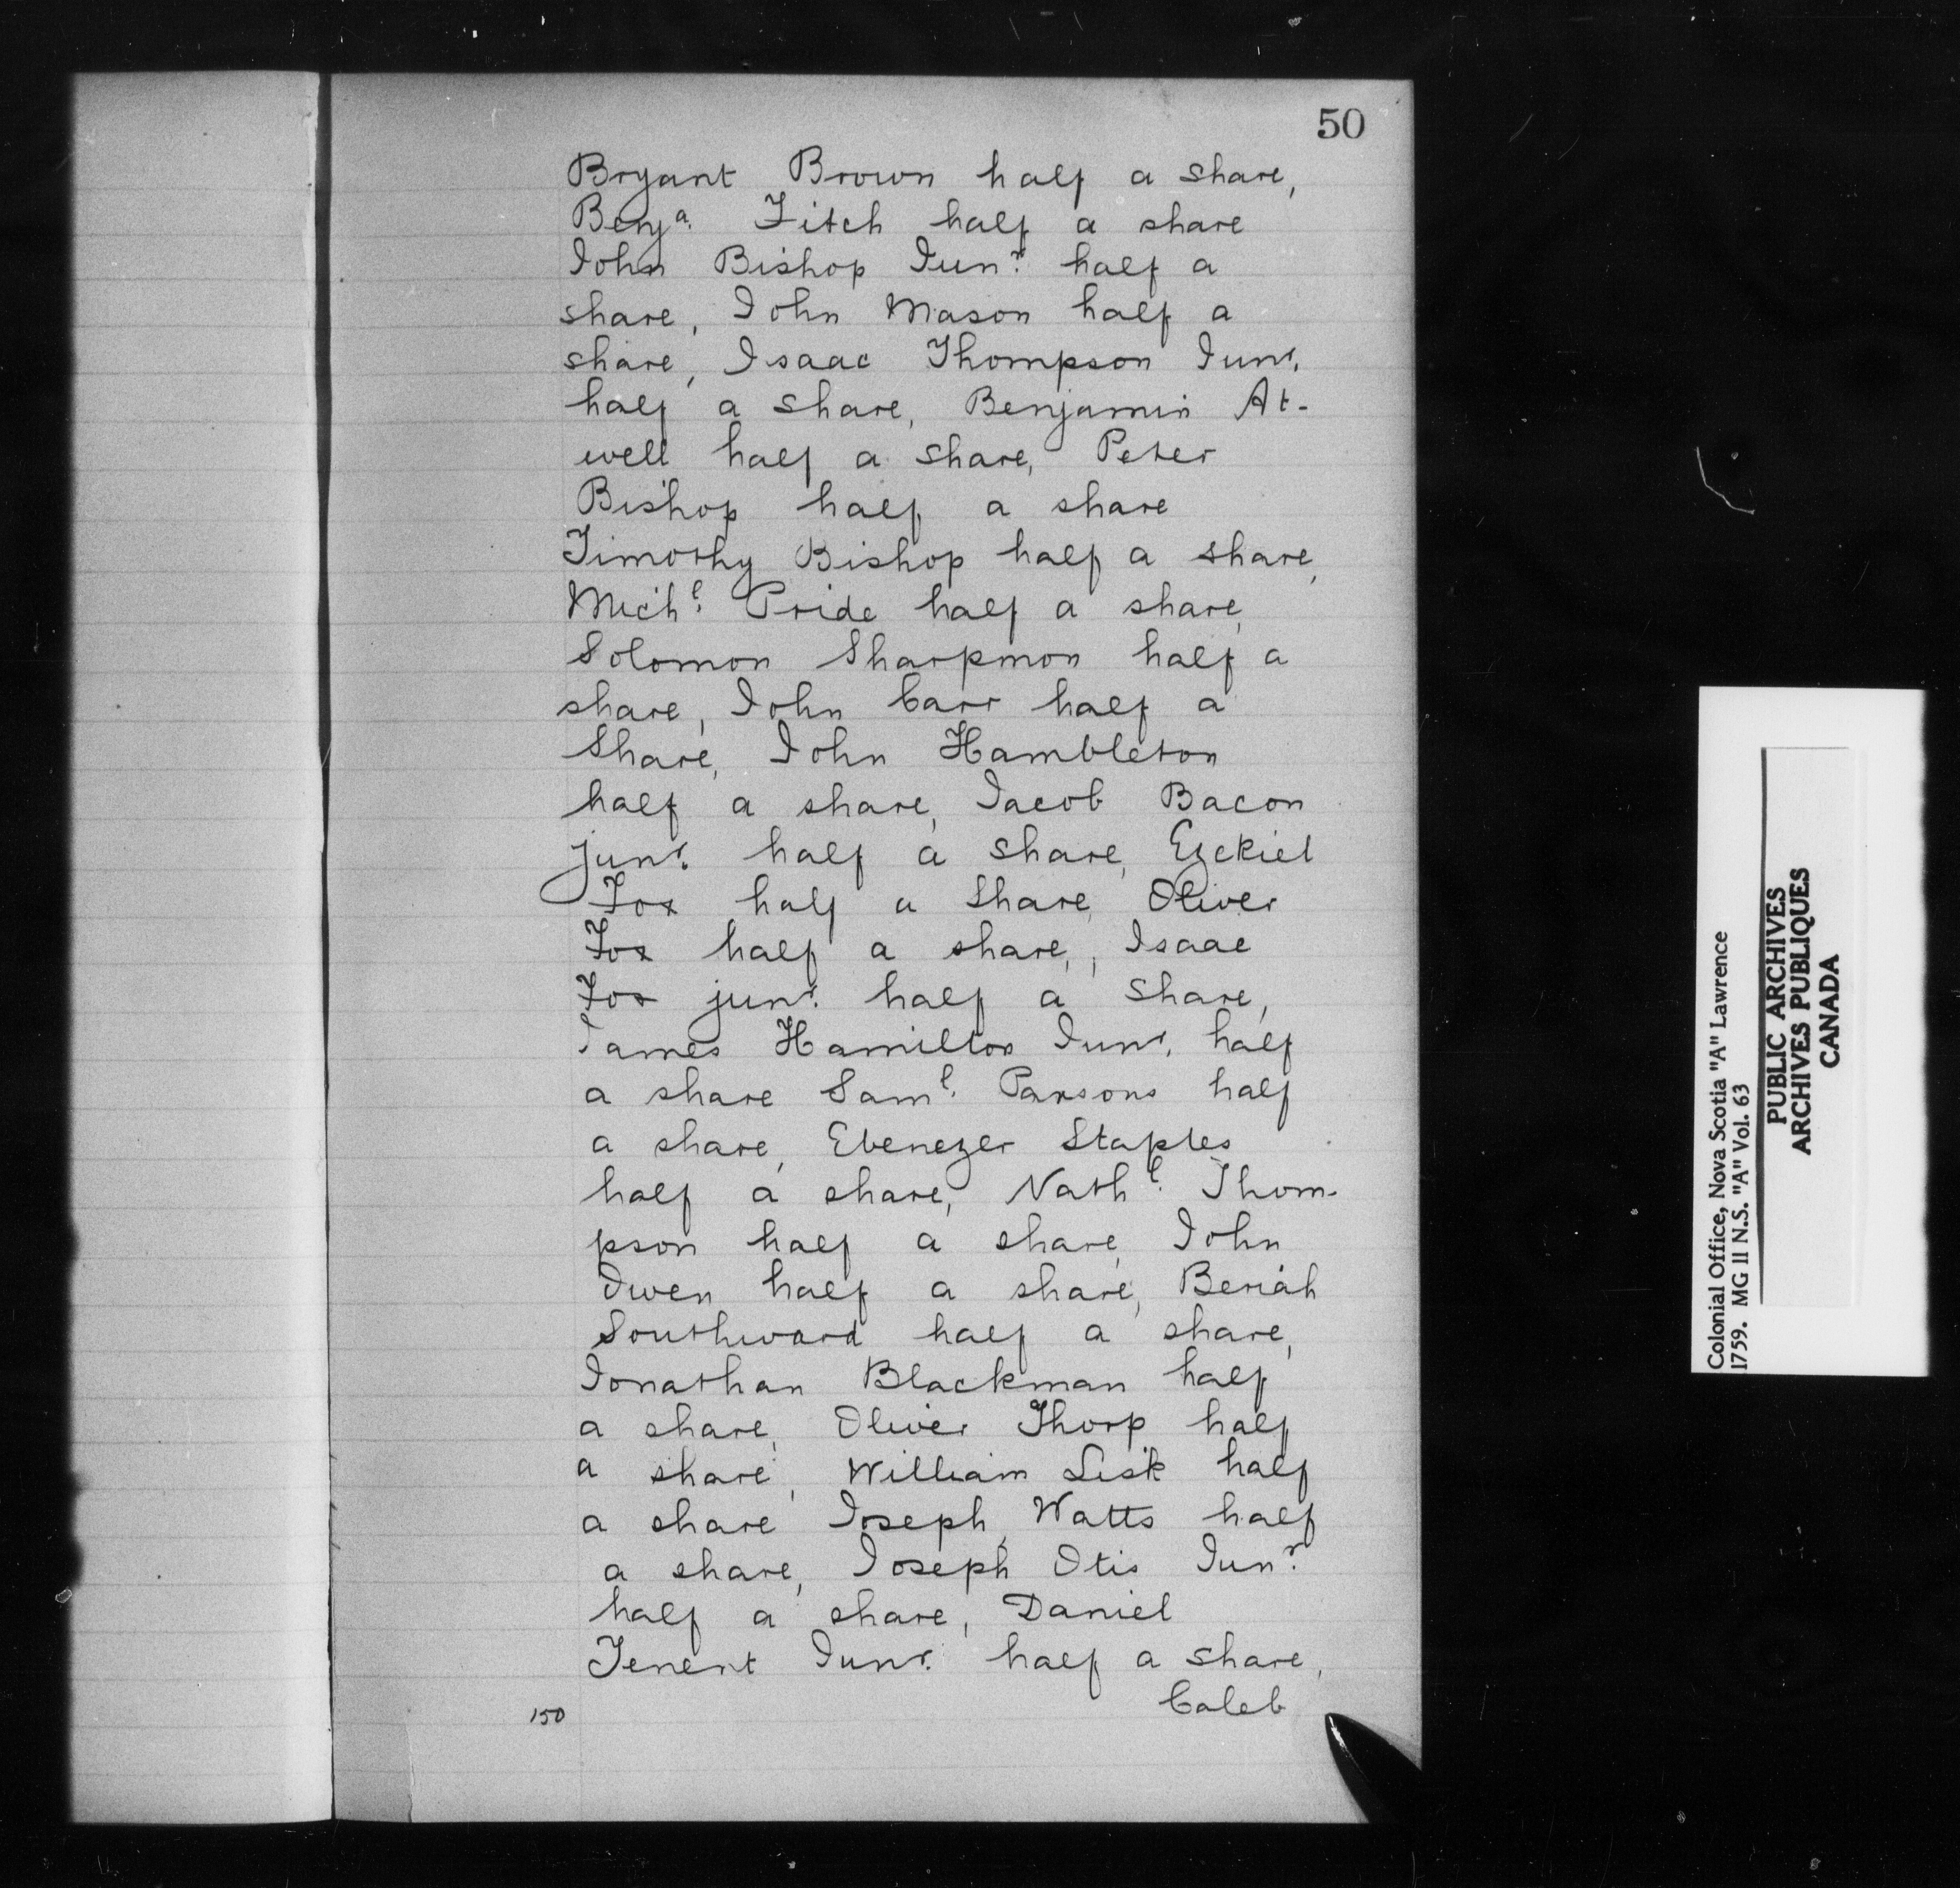 50
Bryant Brown half a share,
Benjᵃ. Fitch half a share
John Bishop Junʳ. half a
share, John Mason half a
share, Isaac Thompson Junʳ.
half a share, Benjamin At-
well half a share, Peter
Bishop half a share
Timothy Bishop half a share,
Michˡ. Pride half a share,
Solomon Sharpmon half a
share, John Carr half a
Share, John Hambleton
half a share, Jacob Bacon
junʳ. half a share, Ezekiel
Fox half a Share, Oliver
Fox half a share, , Isaac
Fox junʳ. half a share,
James Hamilton Junʳ. half
a share Samˡ. Parsons half
a share, Ebenezer Staples
half a share, Nathˡ. Thom-
pson half a share, John
Owen half a share, Beriah
Southward half a share,
Jonathan Blackman half
a share, Oliver Thorp half
a share, William Lisk half
a share Joseph, Watts half
a share, Joseph Otis Junʳ.
half a share, Daniel
Tenent Junʳ. half a share,
Caleb
150
Colonial Office, Nova Scotia "A" Lawrence
1759. MG II N.S. "A" Vol. 63
PUBLIC ARCHIVES
ARCHIVES PUBLIQUES
CANADA